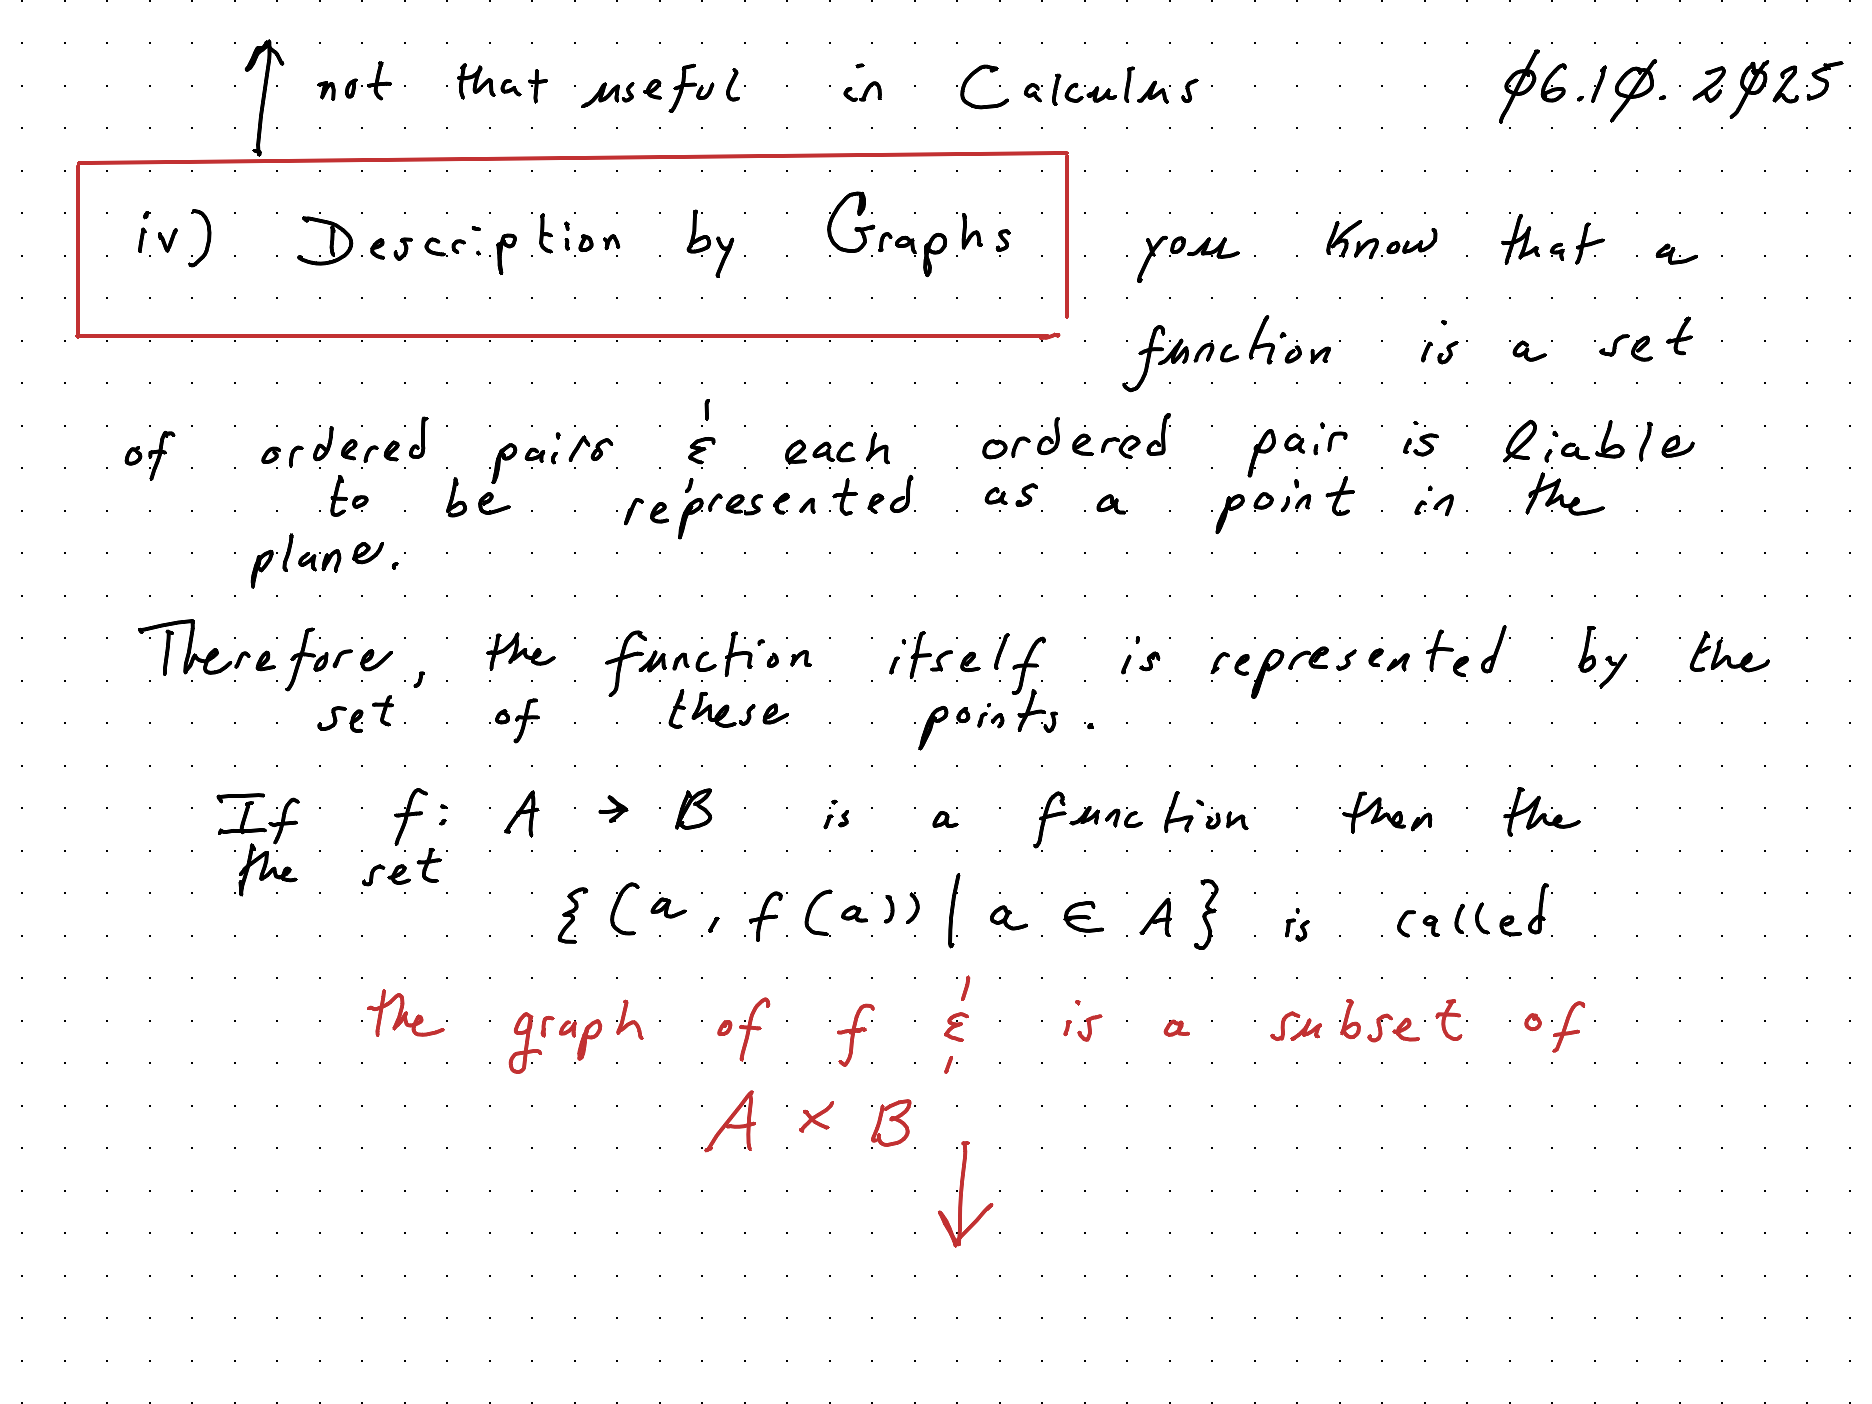 not that useful in Calculus 06.10.2025
iv) Description by Graphs you know that a
function is a set
of ordered pairs & each ordered pair is liable
to be represented as a point in the
plane.
Therefore, the function itself is represented by the
set of these points.
If f: A → B is a function then the
the set
{(a, f(a)) | a ∈ A} is called
the graph of f & is a subset of
A × B